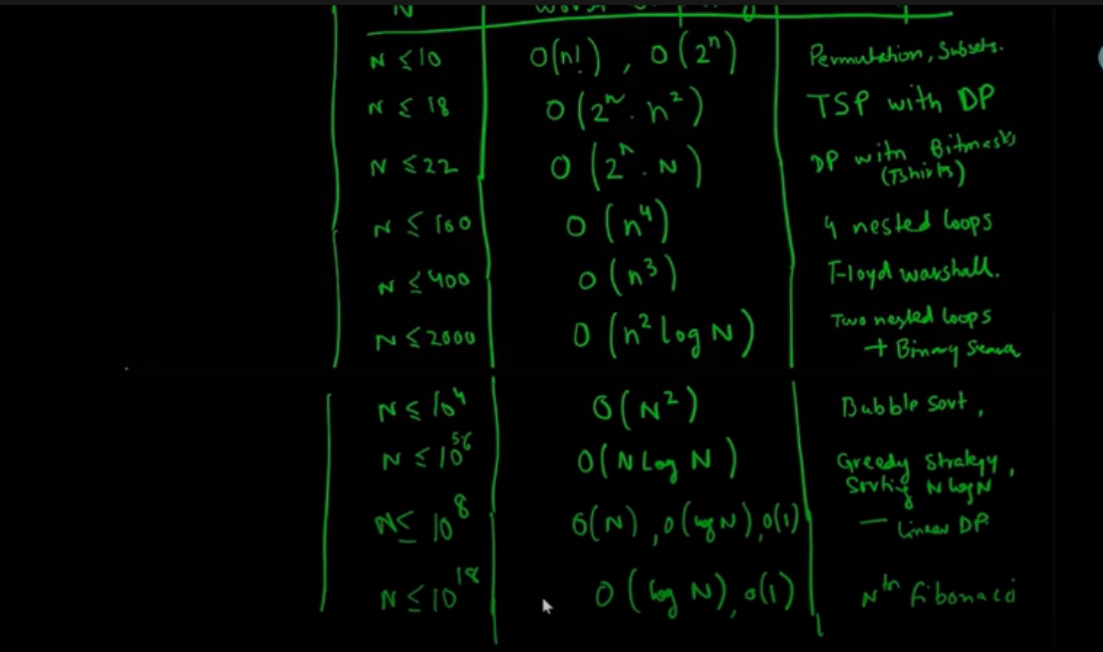 N
N ≤ 10 O(n!), O(2^n) Permutation, Subsets.
N ≤ 18 O(2^n . n^2) TSP with DP
N ≤ 22 O(2^n . N) DP with Bitmasks
(Tshirts)
N ≤ 100 O(n^4) 4 nested loops
N ≤ 400 O(n^3) Floyd warshall.
N ≤ 2000 O(n^2 log N) Two nested loops
+ Binary
N ≤ 10^4 O(N^2) Bubble sort,
N ≤ 10^56 O(N Log N) Greedy Strategy,
Sorting N log N
N ≤ 10^8 O(N), O(log N), O(1) — Linear DP
N ≤ 10^18 O(log N), O(1) Nth fibonacci